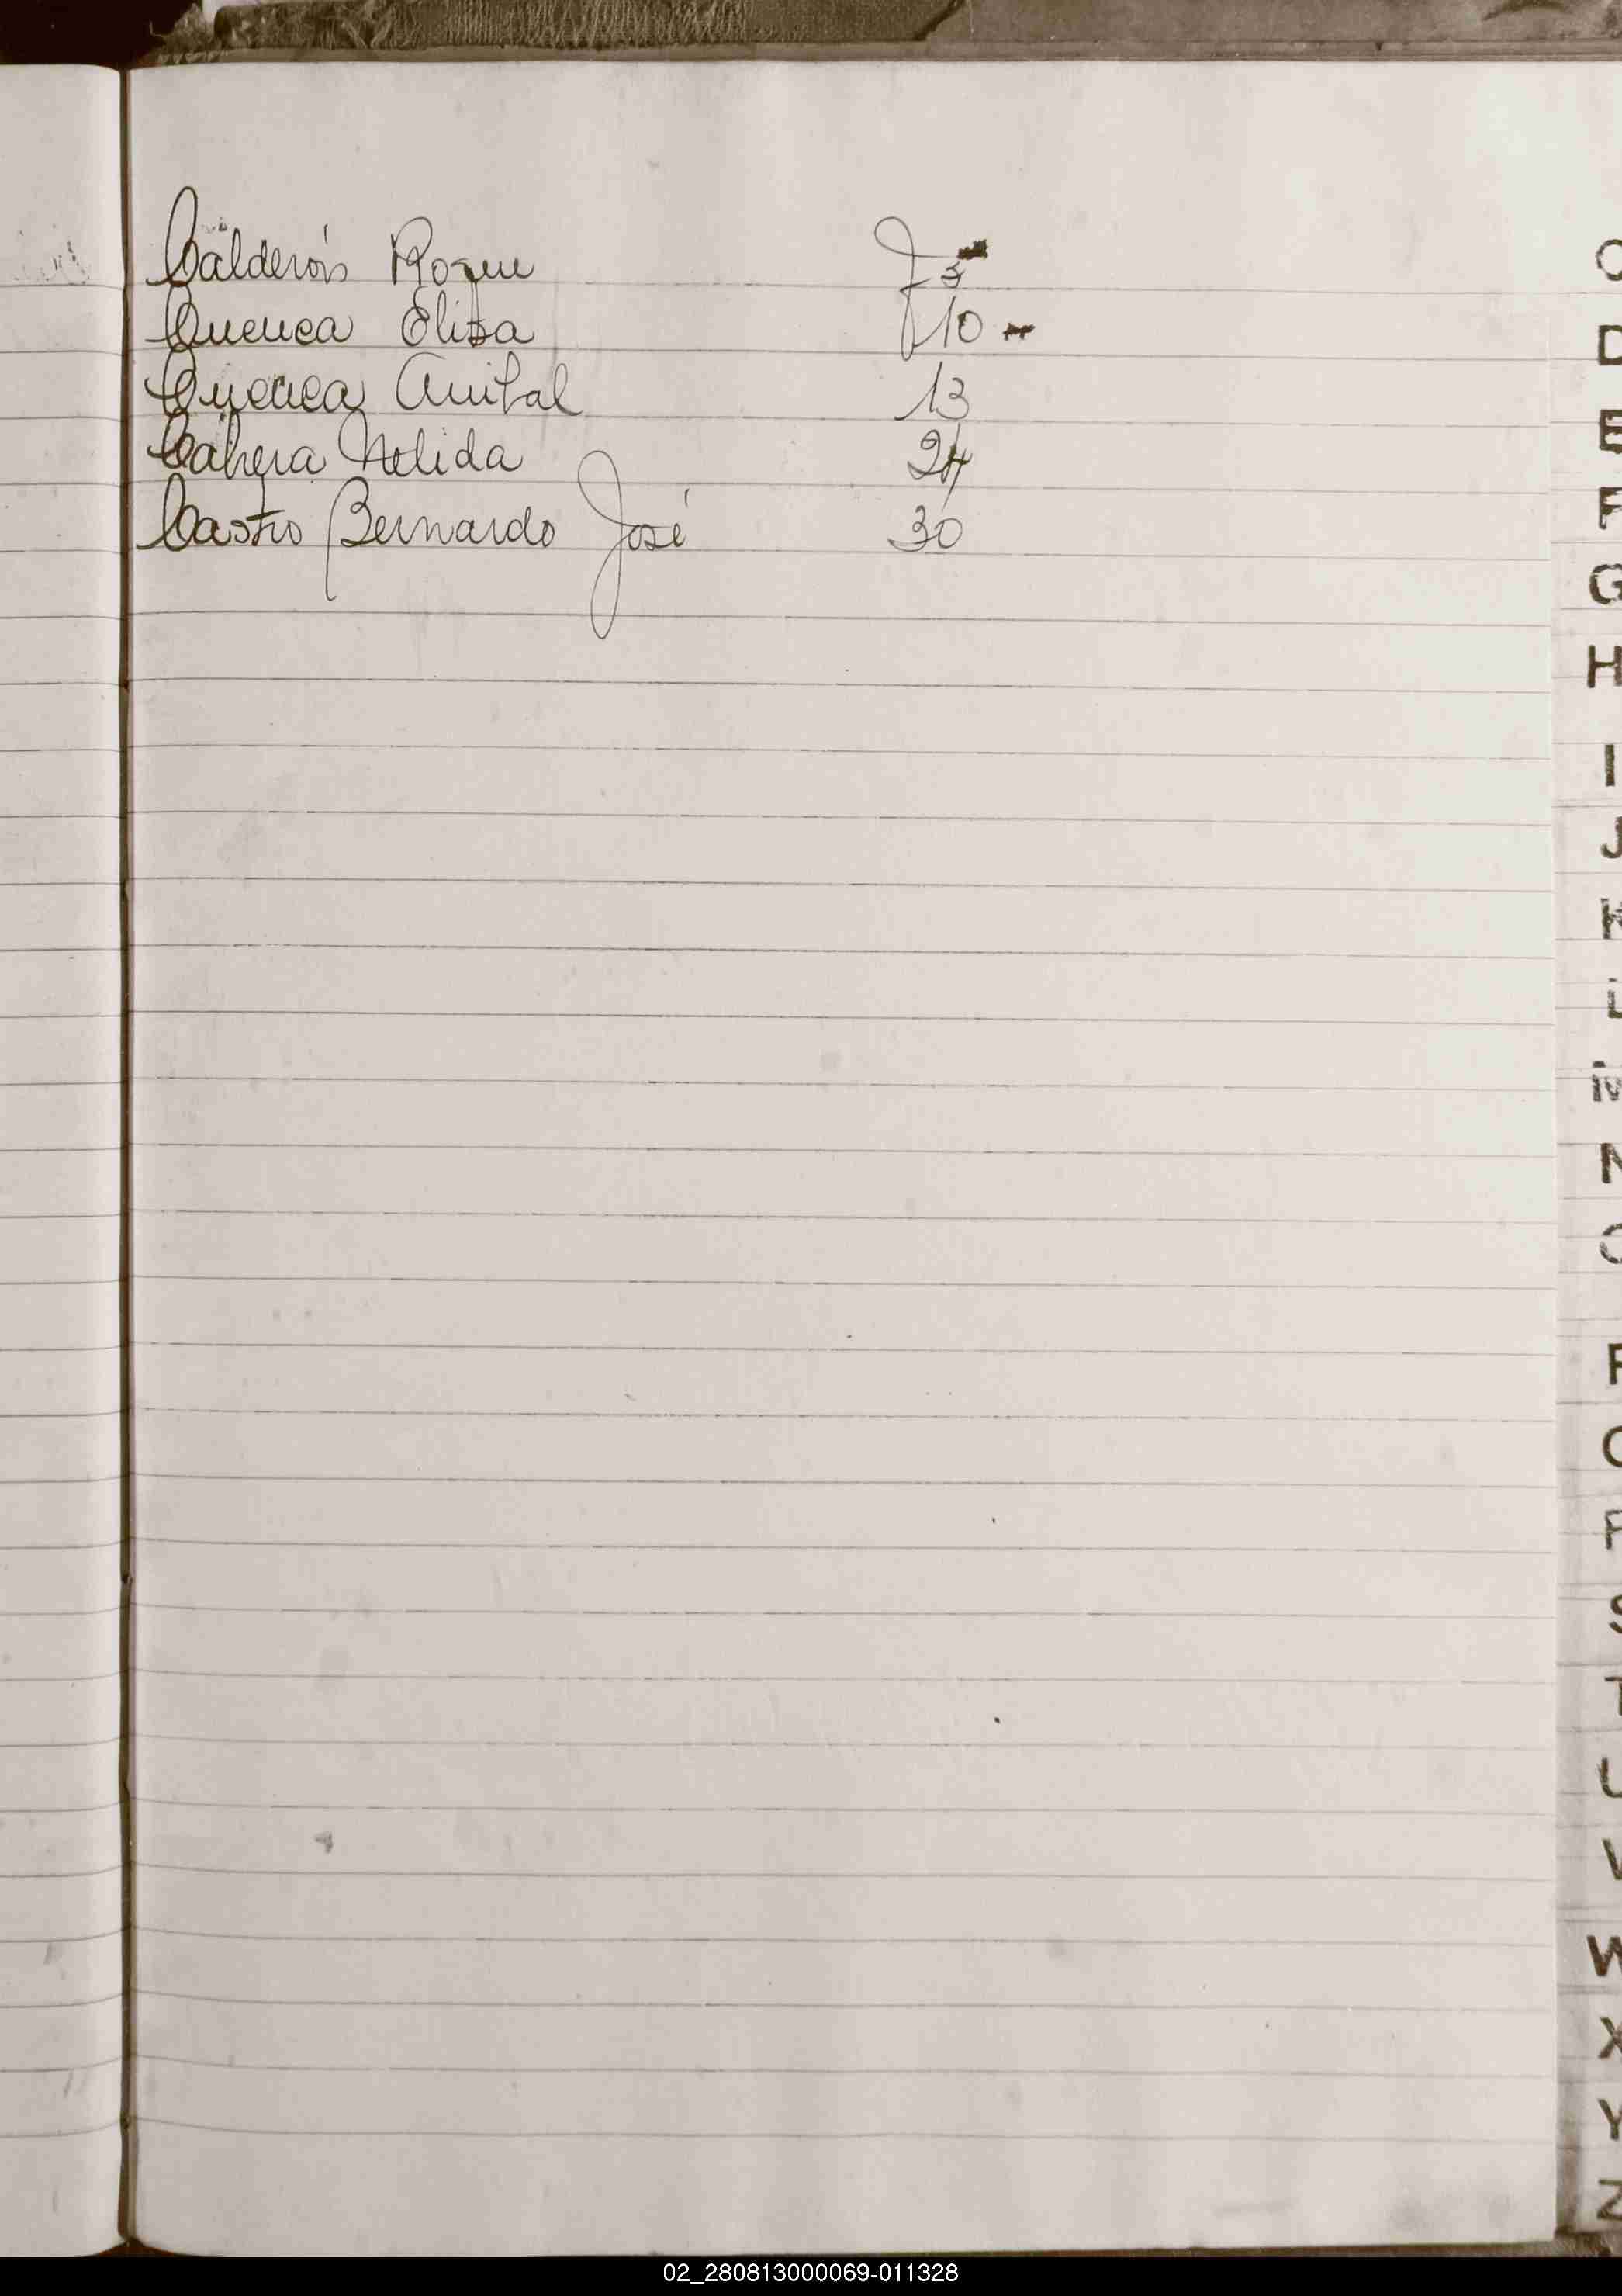 Calderón Roque F 5
Cuenca Elisa 10
Cuenca Anibal 13
Cabrera Nelida 24
Castro Bernardo José 30
C
D
E
F
G
H
I
J
K
L
M
N
O
P
Q
R
S
T
U
V
W
X
Y
Z
02_280813000069-011328